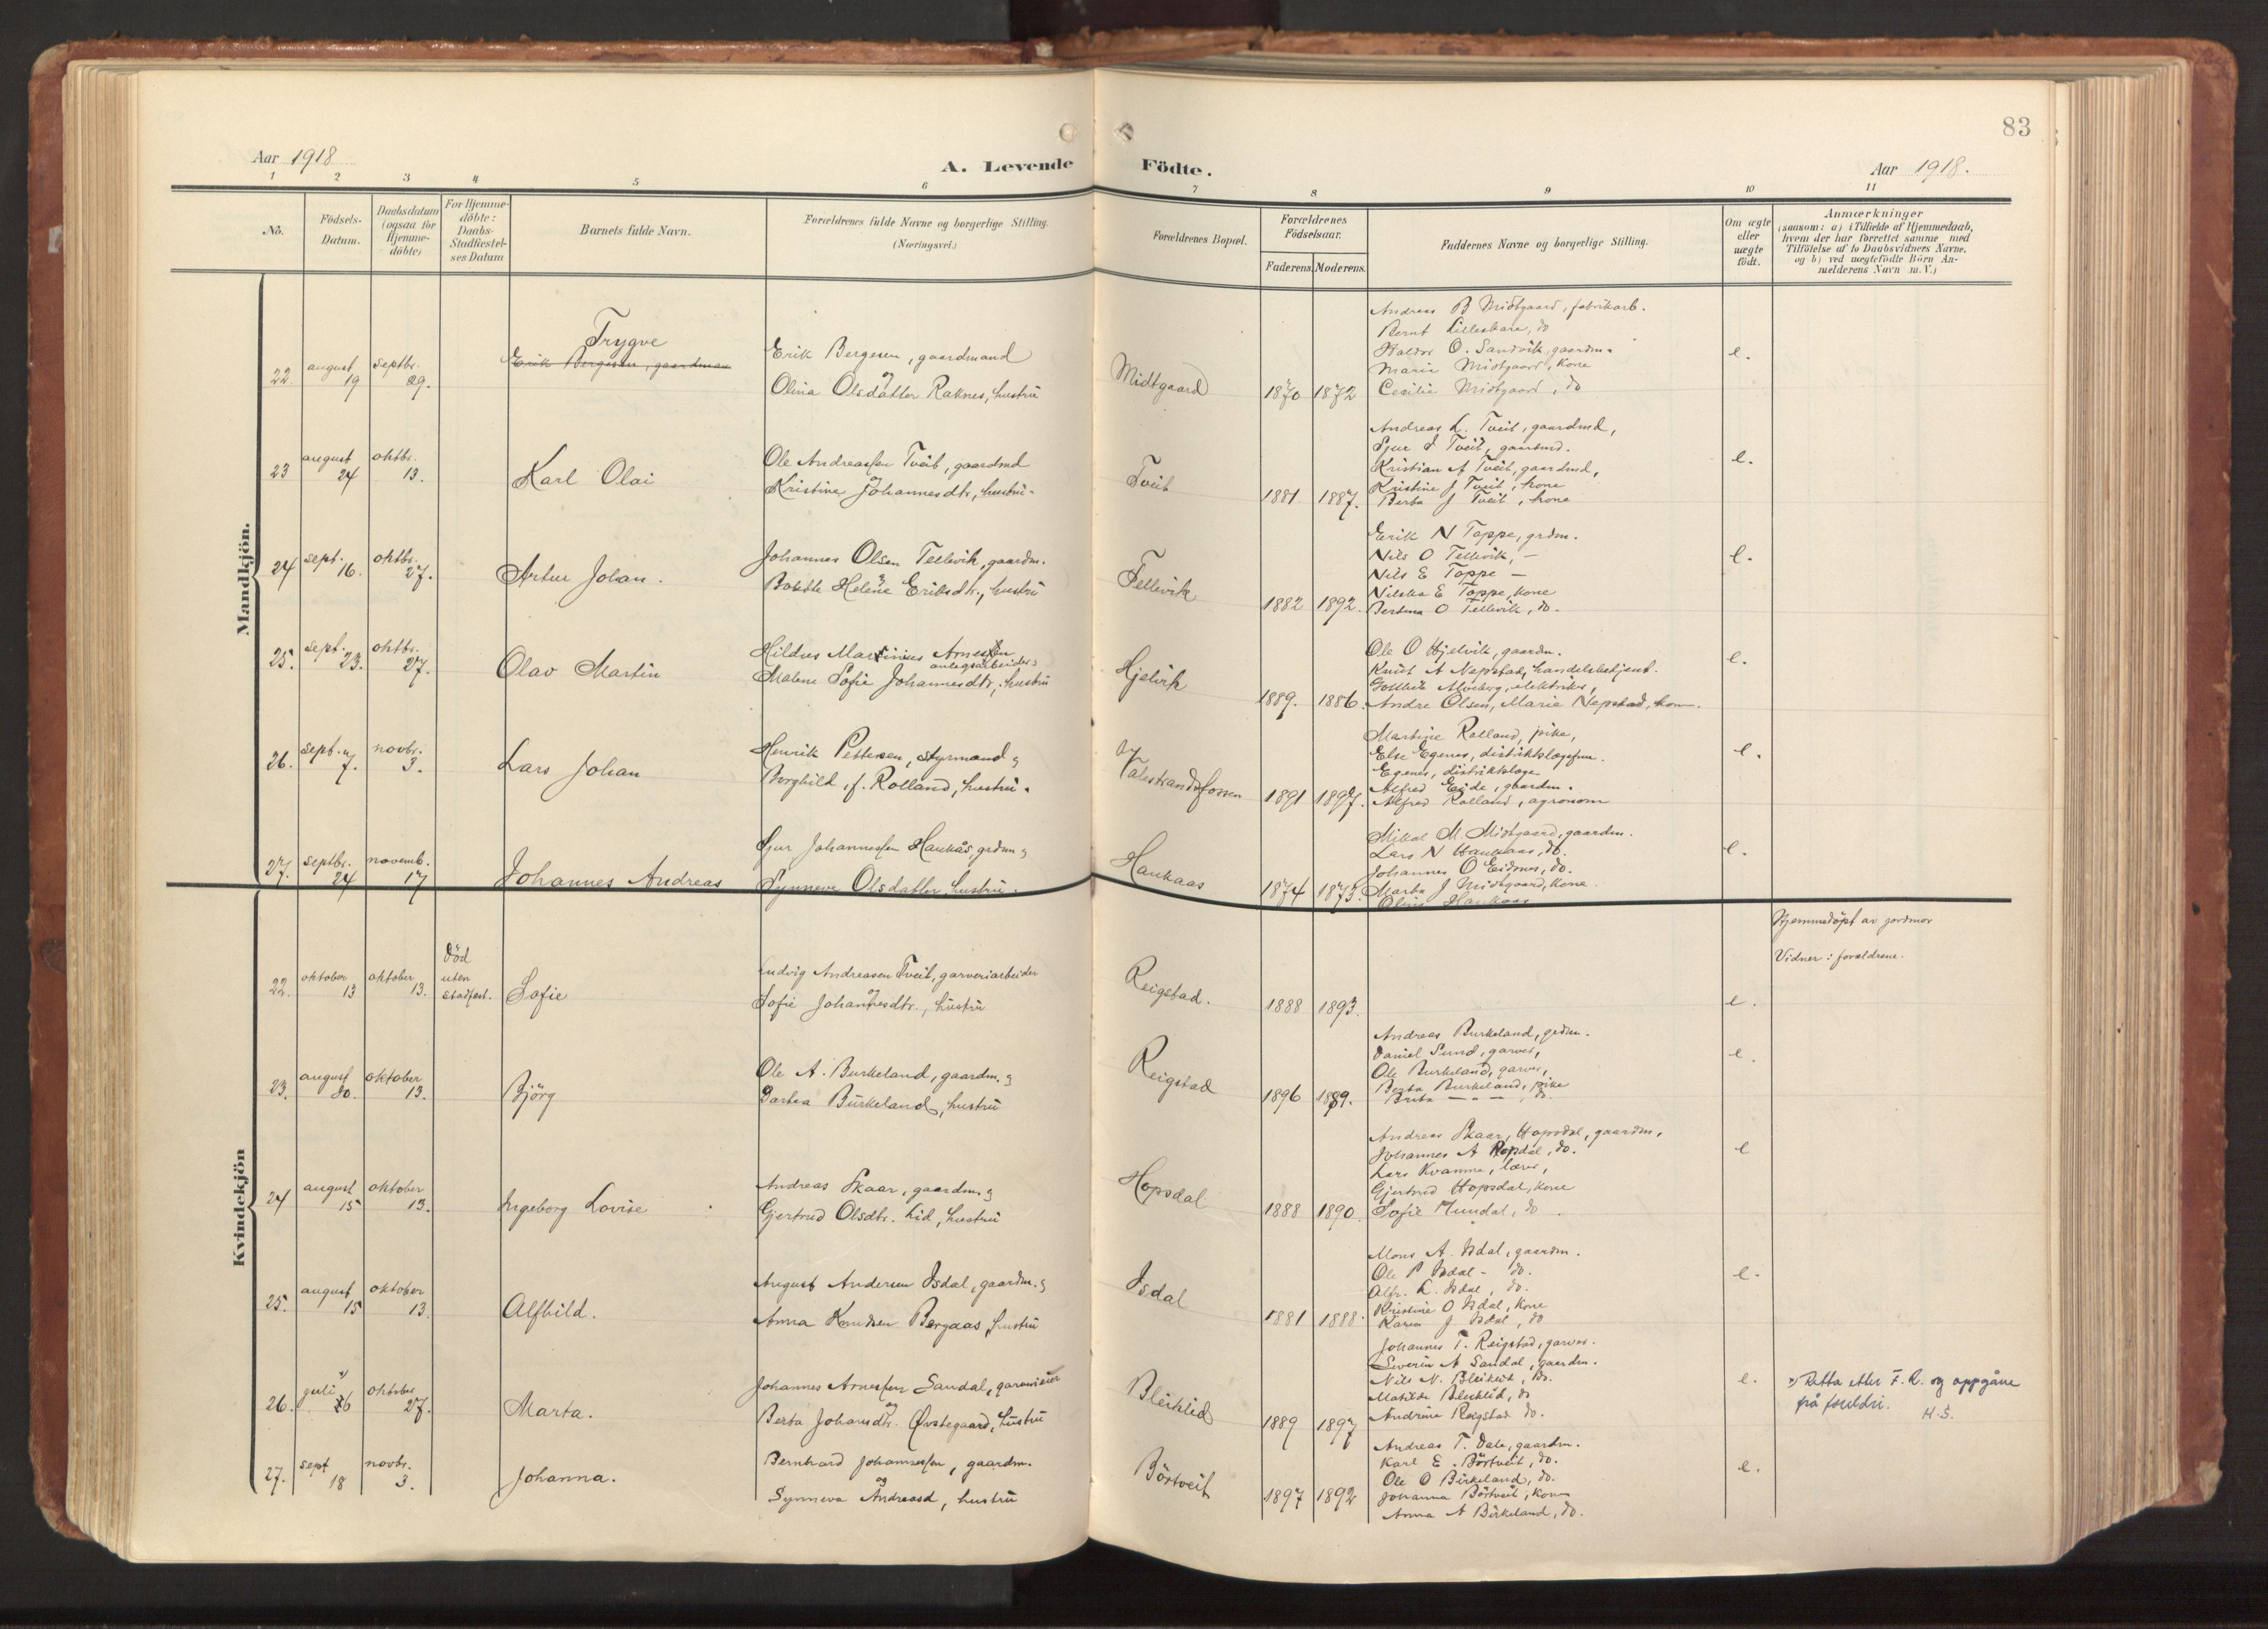 83
Aar 1918
A. Levende Födte.
Aar 1918.
1 2 3 4 5 6 7 8 9 10 11
No.
Födsels-
Datum.
Daabsdatum
(ogsaa for
Hjemme-
döbte)
For Hjemme-
döbte:
Daabs-
Stadfæstel-
ses Datum
Barnets fulde Navn.
Forældrenes fulde Navne og borgerlige Stilling.
(Næringsvei.)
Forældrenes Bopæl.
Forældrenes
Födselsaar.
Faderens. Moderens.
Faddernes Navne og borgerlige Stilling.
Om ægte
eller
uægte
födt.
Anmærkninger
(saasom: a) i Tilfælde af Hjemmedaab,
hvem der har forrettet samme med
Tilföielse af to Daabsvidners Navne.
og b) ved uægtefödte Börn An-
melderens Navn m. V.)
Mandkjön.
22. august 19 septbr. 29.
Trygve
Erik Bergesen, gaardman
Erik Bergesen, gaardmand
og
Olina Olsdatter Raknes, hustru
Midtgaard
1870 1872
Andreas B Midtgaard, fabrikarb.
Bernt Lilleskare, do
Haldor O. Sandvik, gaardm.
Marie Midtgaard, kone
Cecilie Midtgaard, do
e.
23 august 24 oktbr. 13.
Karl Olai
Ole Andreassen Tveit, gaardmd
og
Kristine Johannesdtr, hustru.
Tveit
1881 1887.
Andreas L. Tveit, gaardmd,
Sjur I Tveit, gaardmd.
Kristian A Tveit, gaardmd,
Kristine J Tveit, kone
Berta J Tveit, kone
e.
24 sept. 16. oktbr. 27.
Artur Johan.
Johannes Olsen Tellevik, gaardm.
Helene Eriksdtr., hustru
Tellevik
1882 1892.
Erik N Toppe, grdm.
Nils O Tellevik, –
Nils E Toppe –
E Toppe, kone
O Tellevik, do.
e.
25. sept. 23. oktbr. 27.
Olav Martin
Hildus Martinius Arnessen
anlegsarbeider
Malene Sofie Johannesdtr, hustru
Hjelvik
1889. 1886.
Ole O Hjelvik, gaardm.
Knut A Nepstad, handelsbetjent.
elektriker,
Andre Olsen, Marie Nepstad, kone.
e.
26. sept. 7. novbr. 3.
Lars Johan
Henrik Pettersen, styrmand og
Borghild, f. Rolland, hustru.
Valestrandsfossen
1891 1897.
Martine Rolland, pike,
Else Egenes, distriktslægefrue.
Egenes, distriktslæge
Alfred Eide, gaardm.
Alfred Rolland, agronom
e.
27. septbr. 24 novemb. 17
Johannes Andreas
Sjur Johannessen Haukås, grdm og
Synneve Olsdatter, hustru.
Haukaas
1874 1873.
Mikal M. Midtgaard, gaardm.
Lars N Haukaas, do.
Johannes O Eidsnes, do.
Marta J Midtgaard, kone.
Haukaas
e.
Kvindekjön
22. oktober 13 oktober 13.
Död
uten
stadfest.
Sofie
Ludvig Andreasen Tveit, garveriarbeider
og
Sofie Johannesdtr., hustru
Reigstad.
1888 1893.
e.
Hjemmedöpt av jordmor
Vidner: foreldrene.
23. august 30. oktober 13.
Björg
Ole A. Burkeland, gaardm. og
Bartea Burkeland, hustru
Reigstad
1896 1889.
Andreas Burkeland, grdm.
Daniel Sund, garver,
Ole Burkeland, garver,
Berta Burkeland, pike
Brita — " —, do.
e.
24 august 15 oktober 13.
Ingeborg Lovise
Andreas Skaar, gaardm. og
Gjertrud Olsdtr. Lid, hustru
Hopsdal
1888 1890.
Andreas Skaar, Hopsdal, gaardm.
Johannes A Hopsdal, do.
Lars Kvamme, lærer,
Gjertrud Hopsdal, kone
Sofie Mundal, do.
e
25. august 15 oktober 13
Alfhild.
August Andersen Isdal, gaardm. og
Anna Knudsen Bergaas, hustru
Isdal
1881 1888.
Mons A. Isdal, gaardm.
Ole P Isdal – do.
Alfr. L. Isdal, do.
Kristine O Isdal, kone
Karen J Isdal, do
e.
26. juli x) 26 oktober 27.
Marta.
Johannes Arnessen Sandal,
og
Berta Johansdtr. Øvstegaard, hustru
Bleiklid
1889 1897
Johannes T. Reigstad, garver.
Severin A Sandal, gaardm.
Nils N. Bleiklid, do.
Matilde Bleiklid, do
Andrine Reigstad do.
e.
x) Retta etter F. R. og oppgåve
frå foreldri. H.S.
27. sept 18 novbr. 3.
Johanna.
Bernhard Johannessen, gaardm.
og
Synneva Andreasd, hustru
Börtveit
1897 1892
Andreas T. Dale, gaardm.
Karl E. Börtveit, do.
Ole O Birkeland, do.
Johanna Börtveit, kone
Anna A Birkeland, do.
e.